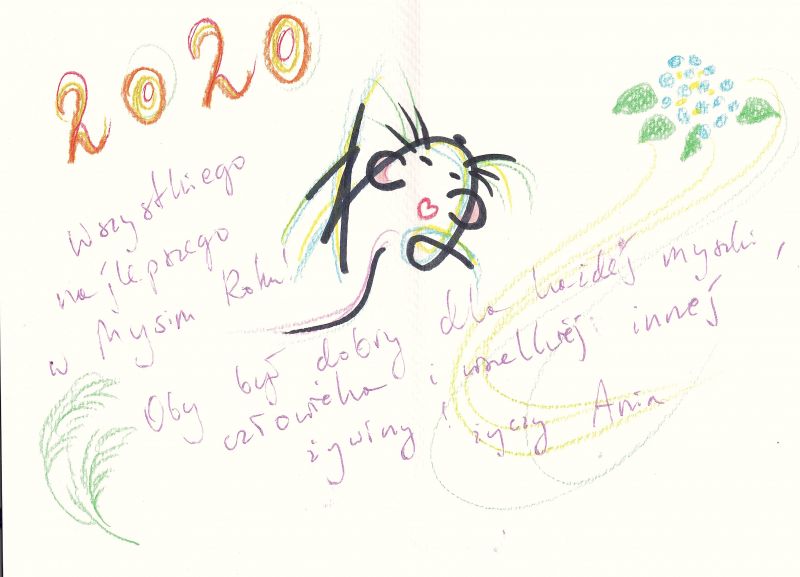 2020
Wszystkiego
najlepszego
w Mysim Roku!
Oby był dobry dla każdej myszki,
człowieka i wszelkiej innej
żywiny! życzy Ania